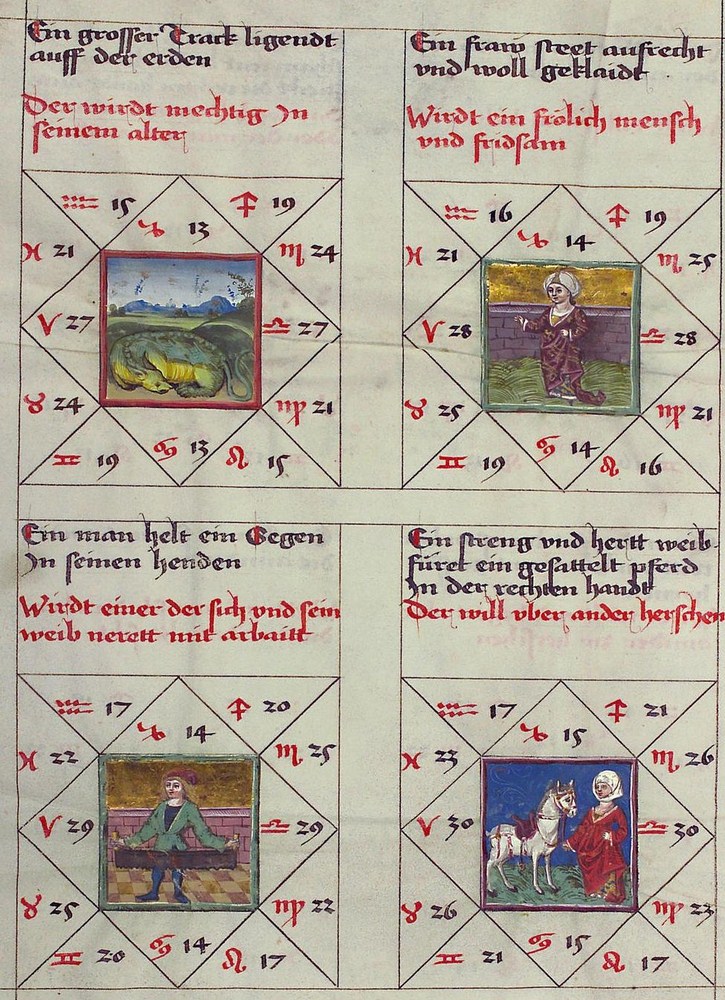 Ein grosser Track ligendt
auff der erden
Der wirdt mechtig Jn
seinem alter
♒ 15 ♑ 13 ♐ 19
♓ 21 ♏ 24
♈ 27 ♎ 27
♉ 24 ♍ 21
♊ 19 ♋ 13 ♌ 15
Ein fraw steet aufrecht
vnd woll geklaidt
Wirdt ein frölich mensch
vnd fridsam
♒ 16 ♑ 14 ♐ 19
♓ 21 ♏ 25
♈ 28 ♎ 28
♉ 25 ♍ 21
♊ 19 ♋ 14 ♌ 16
Ein man helt ein Segen
Jn seinen henden
Wirdt einer der sich vnd sein
weib nerett mit arbaitt
♒ 17 ♑ 14 ♐ 20
♓ 22 ♏ 25
♈ 29 ♎ 29
♉ 25 ♍ 22
♊ 20 ♋ 14 ♌ 17
Ein streng vnd hertt weib
füret ein gesattelt pferd
Jn der rechten handt
Der will vber ander herschen
♒ 17 ♑ 15 ♐ 21
♓ 23 ♏ 26
♈ 30 ♎ 30
♉ 26 ♍ 23
♊ 21 ♋ 15 ♌ 17